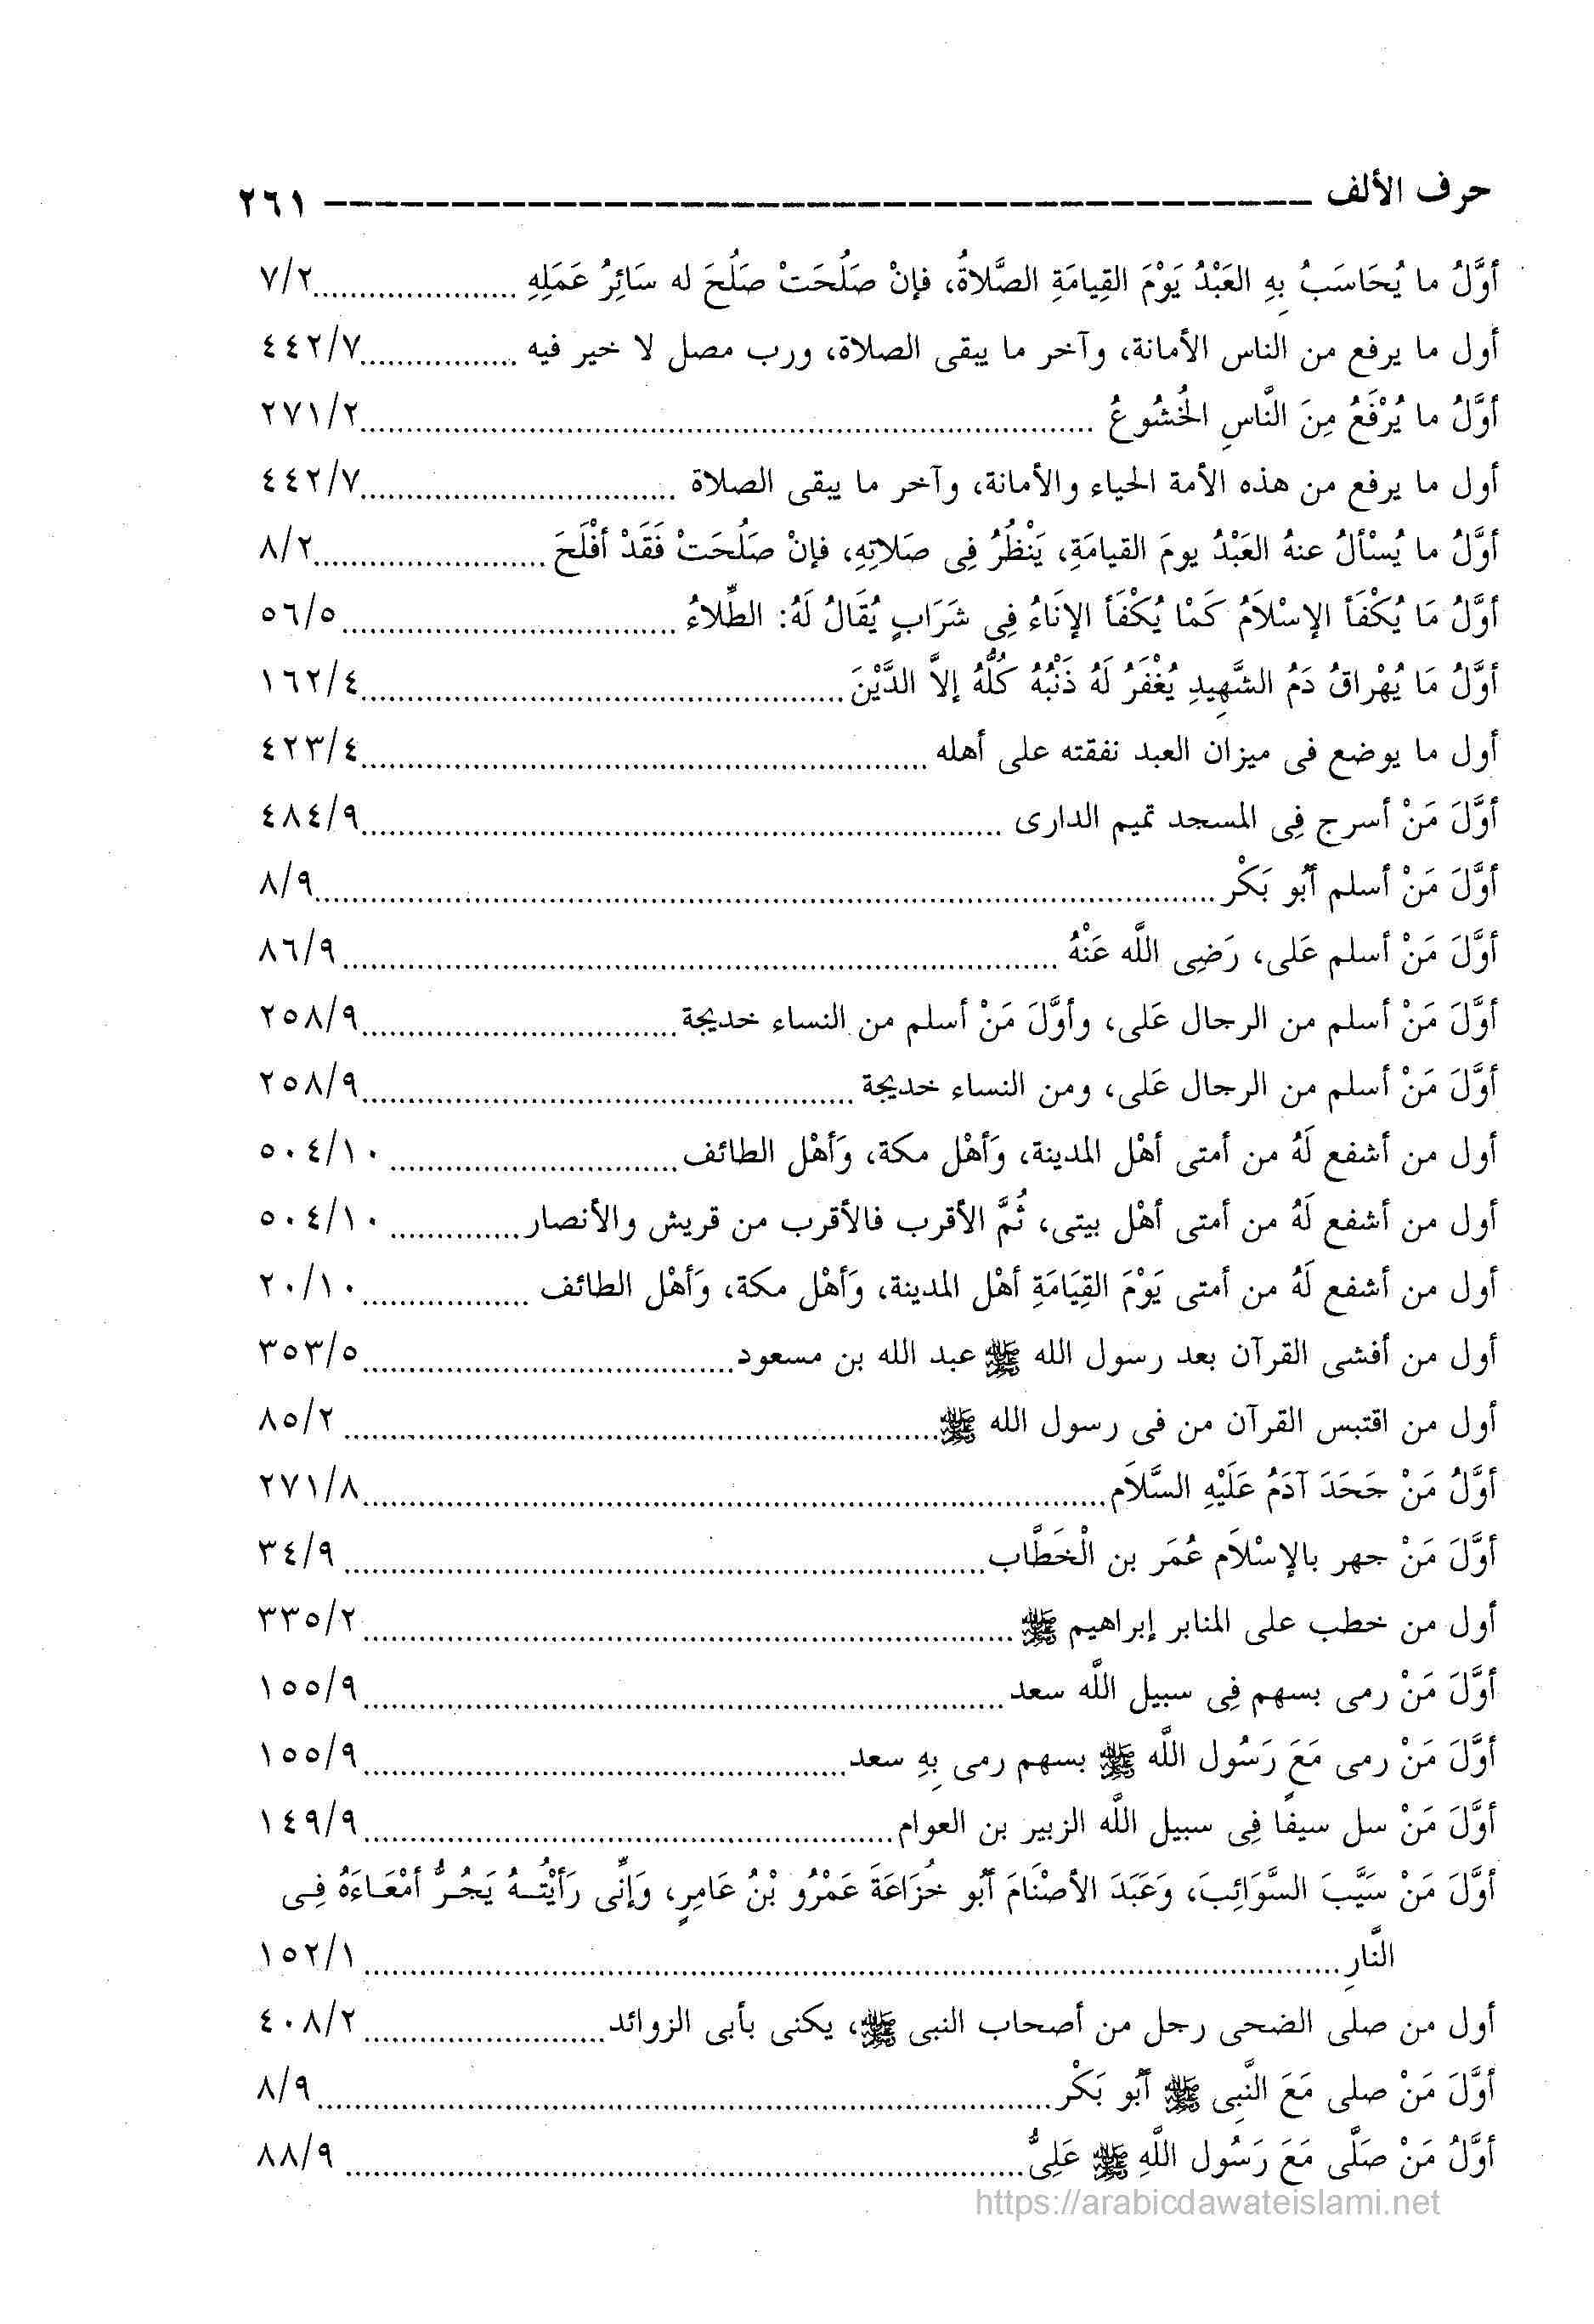 حرف الألف ــــــــــــــــــــــــــــــــــــــــ ٢٦١
أوَّلُ ما يُحَاسَبُ بِهِ العَبْدُ يَوْمَ القِيامَةِ الصَّلاةُ، فإنْ صَلُحَتْ صَلُحَ له سَائِرُ عَمَلِهِ ........ ٧/٢
أول ما يرفع من الناس الأمانة، وآخر ما يبقى الصلاة، ورب مصل لا خير فيه ........ ٤٤٢/٧
أوَّلُ ما يُرْفَعُ مِنَ النَّاسِ الخُشُوعُ ........ ٢٧١/٢
أول ما يرفع من هذه الأمة الحياء والأمانة، وآخر ما يبقى الصلاة ........ ٤٤٢/٧
أوَّلُ ما يُسْألُ عنهُ العَبْدُ يومَ القيامَةِ، يَنْظُرُ فِى صَلاتِهِ، فإنْ صَلُحَتْ فَقَدْ أفْلَحَ ........ ٨/٢
أوَّلُ مَا يُكْفَأ الإسْلاَمُ كَمْا يُكْفَأ الإنَاءُ فِى شَرَابٍ يُقَالُ لَهُ: الطِّلاءُ ........ ٥٦/٥
أوَّلُ مَا يُهْراقُ دَمُ الشَّهِيدِ يُغْفَرُ لَهُ ذَنْبُهُ كُلُّهُ إلاَّ الدَّيْنَ ........ ١٦٢/٤
أول ما يوضع فى ميزان العبد نفقته على أهله ........ ٤٢٣/٤
أوَّلَ مَنْ أسرج فِى المسجد تميم الدارى ........ ٤٨٤/٩
أوَّلَ مَنْ أسلم أبُو بَكْر ........ ٨/٩
أوَّلَ مَنْ أسلم عَلى، رَضِى اللَّه عَنْهُ ........ ٨٦/٩
أوَّلَ مَنْ أسلم من الرجال عَلى، وأوَّلَ مَنْ أسلم من النساء خديجة ........ ٢٥٨/٩
أوَّلَ مَنْ أسلم من الرجال عَلى، ومن النساء خديجة ........ ٢٥٨/٩
أول من أشفع لَهُ من أمتى أهْل المدينة، وَأهْل مكة، وَأهْل الطائف ........ ٥٠٤/١٠
أول من أشفع لَهُ من أمتى أهْل بيتى، ثُمَّ الأقرب فالأقرب من قريش والأنصار ........ ٥٠٤/١٠
أول من أشفع لَهُ من أمتى يَوْمَ القِيَامَةِ أهْل المدينة، وَأهْل مكة، وَأهْل الطائف ........ ٢٠/١٠
أول من أفشى القرآن بعد رسول الله ﷺ عبد الله بن مسعود ........ ٣٥٣/٥
أول من اقتبس القرآن من فى رسول الله ﷺ ........ ٨٥/٢
أوَّلُ مَنْ جَحَدَ آدَمُ عَلَيْهِ السَّلاَم ........ ٢٧١/٨
أوَّلَ مَنْ جهر بالإسْلاَم عُمَر بن الْخَطَّاب ........ ٣٤/٩
أول من خطب على المنابر إبراهيم ﷺ ........ ٣٣٥/٢
أوَّلَ مَنْ رمى بسهم فِى سبيل اللَّه سعد ........ ١٥٥/٩
أوَّلَ مَنْ رمى مَعَ رَسُول اللَّه ﷺ بسهم رمى بِهِ سعد ........ ١٥٥/٩
أوَّلَ مَنْ سل سيفًا فِى سبيل اللَّه الزبير بن العوام ........ ١٤٩/٩
أوَّلَ مَنْ سَيَّبَ السَّوَائِبَ، وَعَبَدَ الأصْنَامَ أبُو خُزَاعَةَ عَمْرُو بْنُ عَامِرٍ، وَإنِّى رَأيْتُـهُ يَجُـرُّ أمْعَـاءَهُ فِـى
النَّارِ ........ ١٥٢/١
أول من صلى الضحى رجل من أصحاب النبى ﷺ، يكنى بأبى الزوائد ........ ٤٠٨/٢
أوَّلَ مَنْ صلى مَعَ النَّبِى ﷺ أبُو بَكْر ........ ٨/٩
أوَّلُ مَنْ صَلَّى مَعَ رَسُول اللَّهِ ﷺ عَلِىُّ ........ ٨٨/٩
https://arabicdawateislami.net